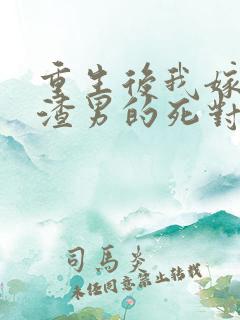 重生後我嫁
渣男的死對
司馬炎
未经同意禁止转载